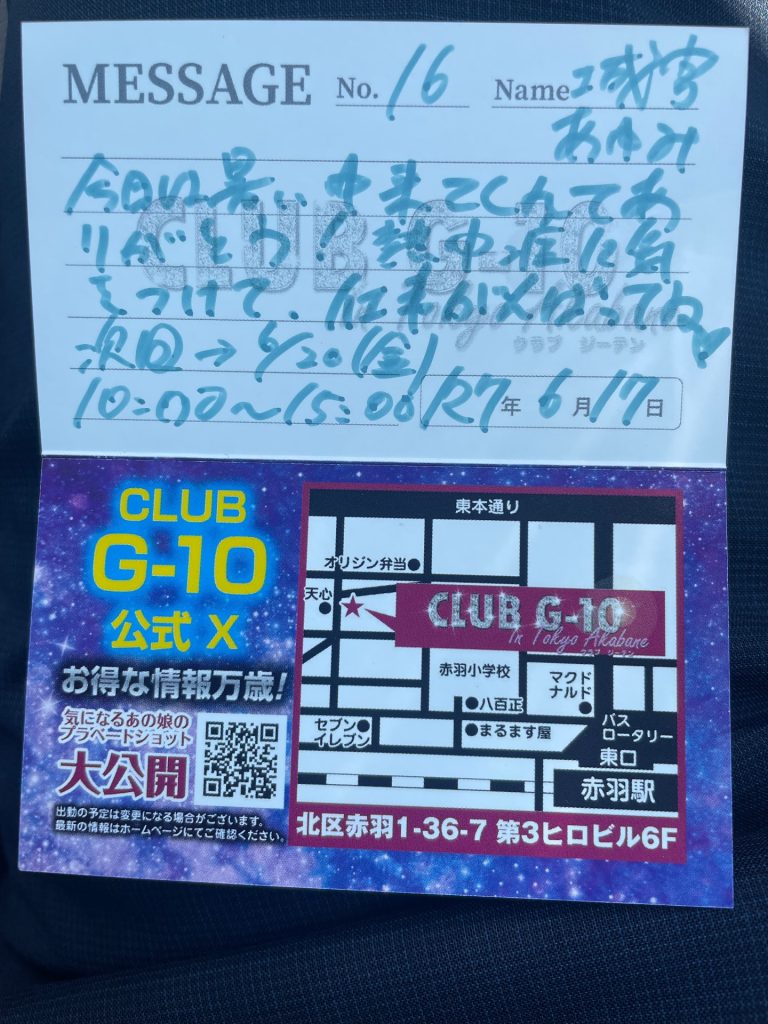 MESSAGE No. 16 Name 城宮
あゆみ
今日は暑い中来てくれてあ
りがとう!熱中症に気
をつけて、仕事がんばってね
次回→6/20(金)
10:00~15:00 R7年6月17日
CLUB G-10
In Tokyo Akabane
クラブ ジーテン
CLUB
G-10
公式 X
お得な情報万歳!
気になるあの娘の
プラベートショット
大公開
出勤の予定は変更になる場合がございます。
最新の情報はホームページにてご確認ください。
東本通り
オリジン弁当
天心
CLUB G-10
In Tokyo Akabane
クラブ ジーテン
赤羽小学校
マクド
ナルド
八百正
セブン
イレブン
まるます屋
バス
ロータリー
東口
赤羽駅
北区赤羽1-36-7 第3ヒロビル6F